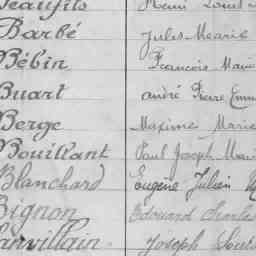 Beaufils Henri Louis
Barbé Jules Marie
Bébin François Marie
Buart André Pierre Emm
Berge Maxime Marie
Bouillant Paul Joseph Mar
Blanchard Eugène Julien
Bignon Edouard Charles
Joseph Louis